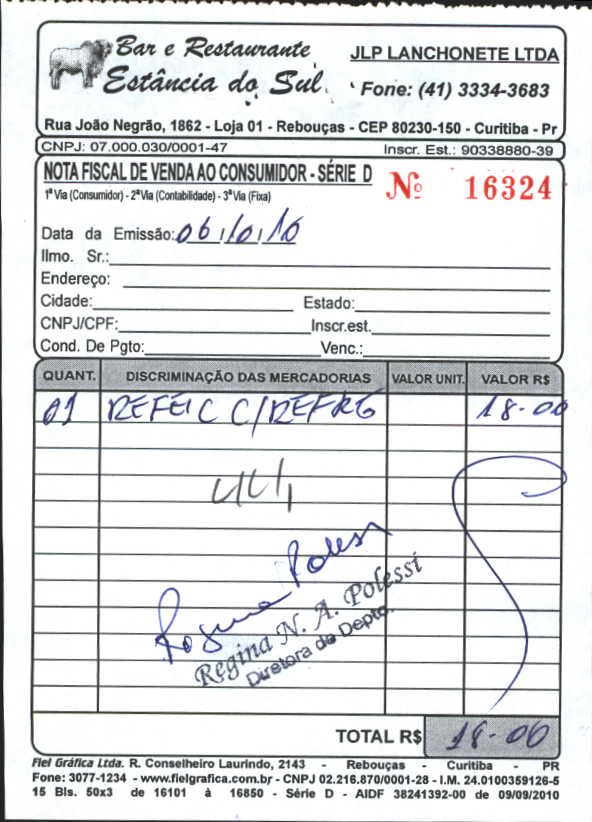 Bar e Restaurante
Estância do Sul
JLP LANCHONETE LTDA
Fone: (41) 3334-3683
Rua João Negrão, 1862 - Loja 01 - Rebouças - CEP 80230-150 - Curitiba - Pr
CNPJ: 07.000.030/0001-47 Inscr. Est.: 90338880-39
NOTA FISCAL DE VENDA AO CONSUMIDOR - SÉRIE D Nº 16324
1ª Via (Consumidor) - 2ª Via (Contabilidade) - 3ª Via (Fixa)
Data da Emissão: 06/10/10
Ilmo. Sr.:
Endereço:
Cidade: Estado:
CNPJ/CPF: Inscr.est.
Cond. De Pgto: Venc.:
QUANT. DISCRIMINAÇÃO DAS MERCADORIAS VALOR UNIT. VALOR R$
01 REFEIC C/REFRG 18-00
Regina Polessi
Regina N. A. Polessi
Diretora de Depto.
TOTAL R$ 18-00
Fiel Gráfica Ltda. R. Conselheiro Laurindo, 2143 - Rebouças - Curitiba - PR
Fone: 3077-1234 - www.fielgrafica.com.br - CNPJ 02.216.870/0001-28 - I.M. 24.0100359126-5
15 Bls. 50x3 de 16101 à 16850 - Série D - AIDF 38241392-00 de 09/09/2010